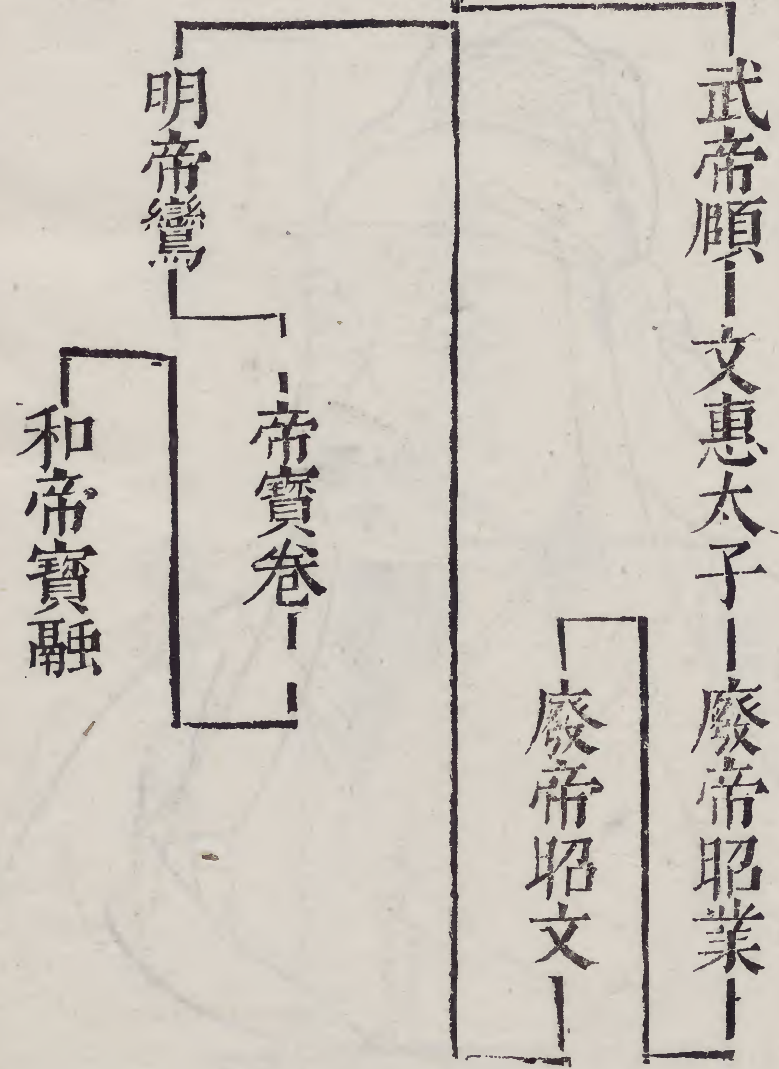 武帝頥
文惠太子
廢帝昭業
廢帝昭文
明帝鸞
帝寶卷
和帝寶融